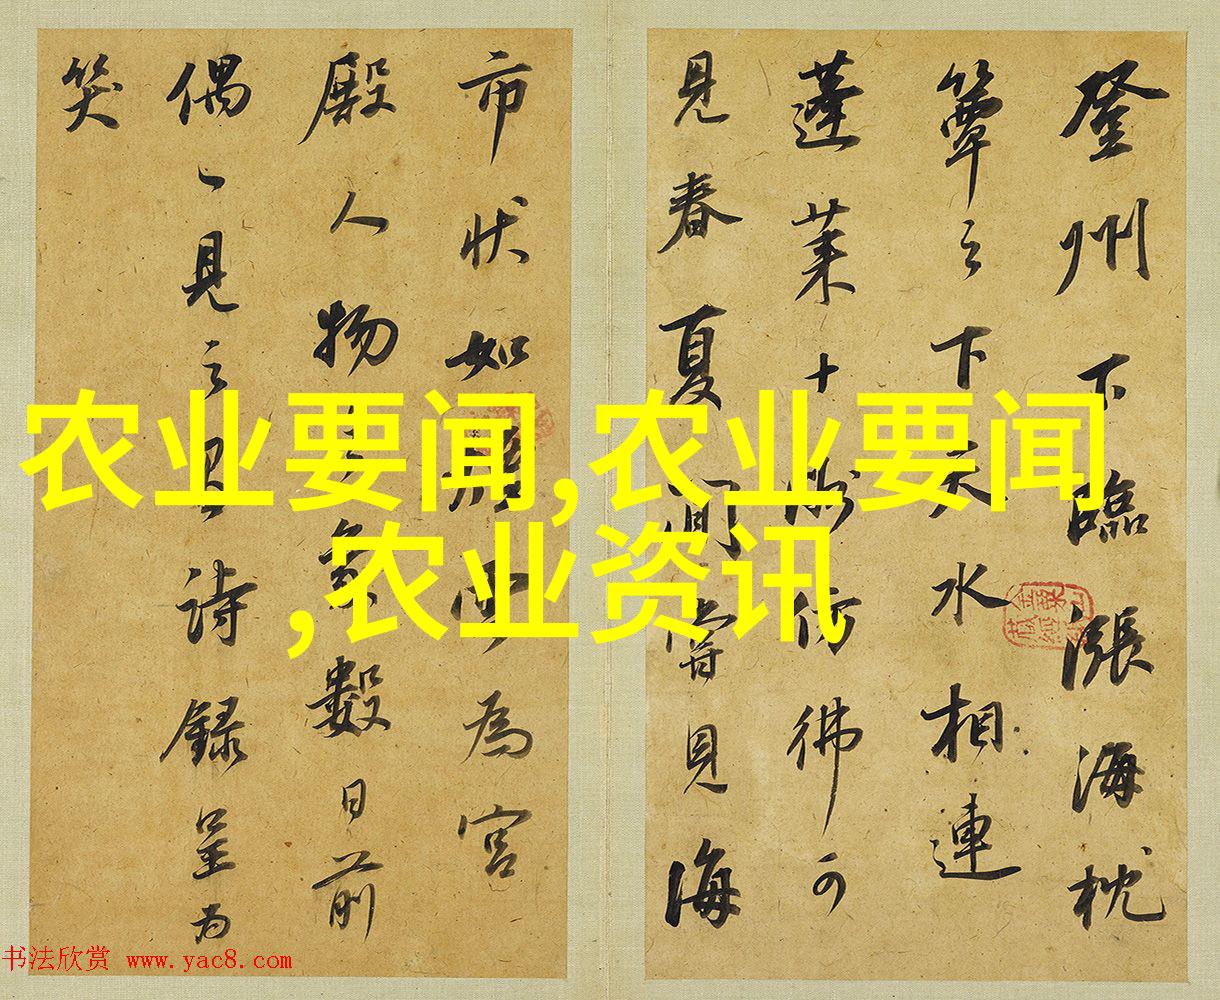 登州下臨漲海枕
簟之下天水相連
蓬莱十彷彿可
見春夏間常見海
市状如為宮
殿人物之象數日前
偶一見之詩録呈為
笑
农业要闻,农业要闻
,农业资讯
书法欣赏 www.yac8.com